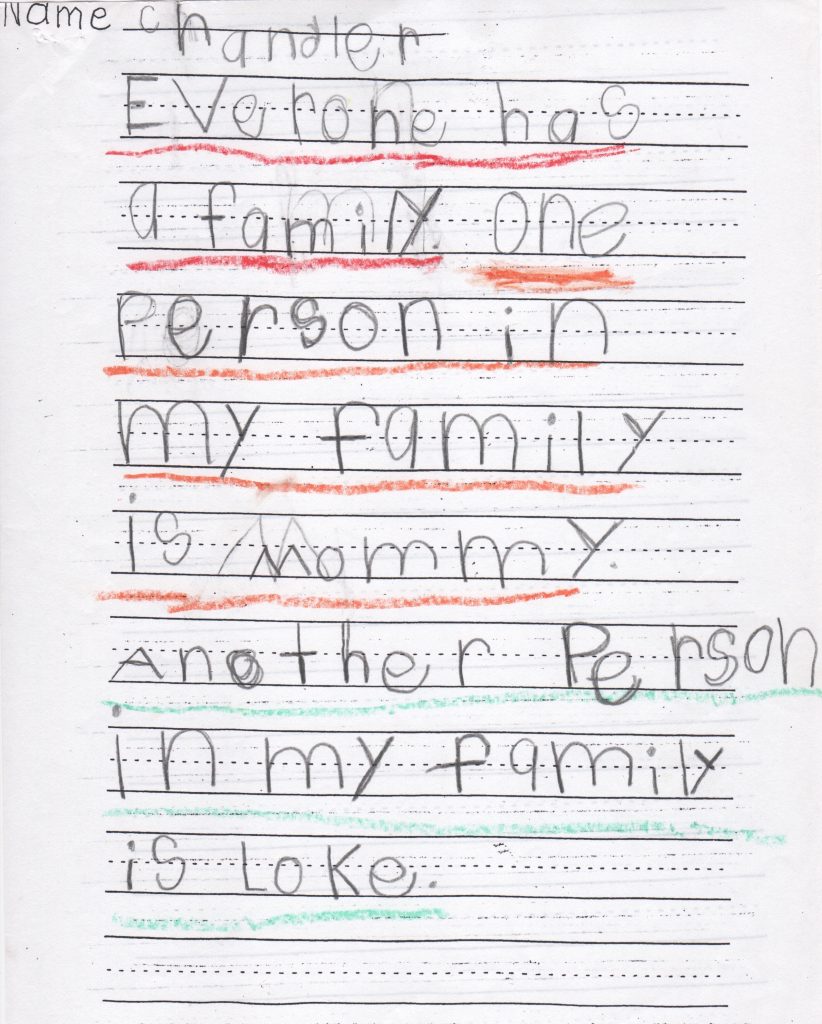 Name Chandler
Everone has
a family. one
Person in
my family
is Mommy.
Another Person
in my family
is Loke.